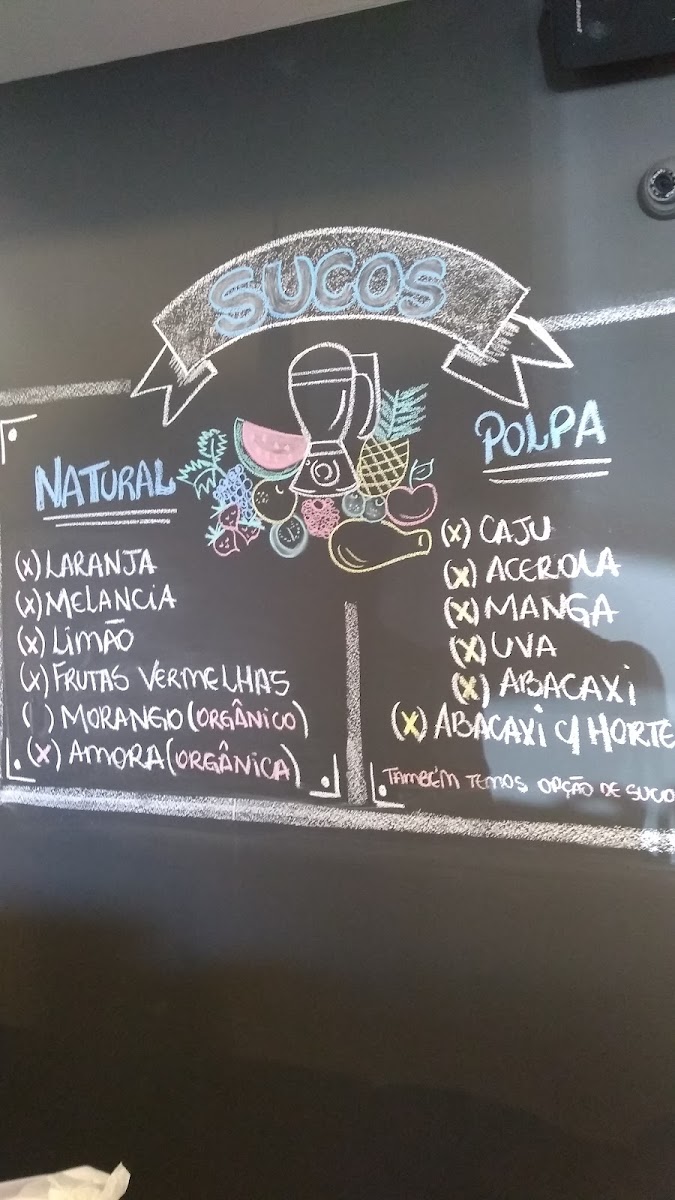 SUCOS
NATURAL
(x) LARANJA
(x) MELANCIA
(x) LIMÃO
(x) FRUTAS VERMELHAS
( ) MORANGO (ORGÂNICO)
(x) AMORA (ORGÂNICA)
POLPA
(x) CAJU
(x) ACEROLA
(x) MANGA
(x) UVA
(x) ABACAXI
(x) ABACAXI C/ HORTE
TAMBÉM TEMOS OPÇÃO DE SUCO